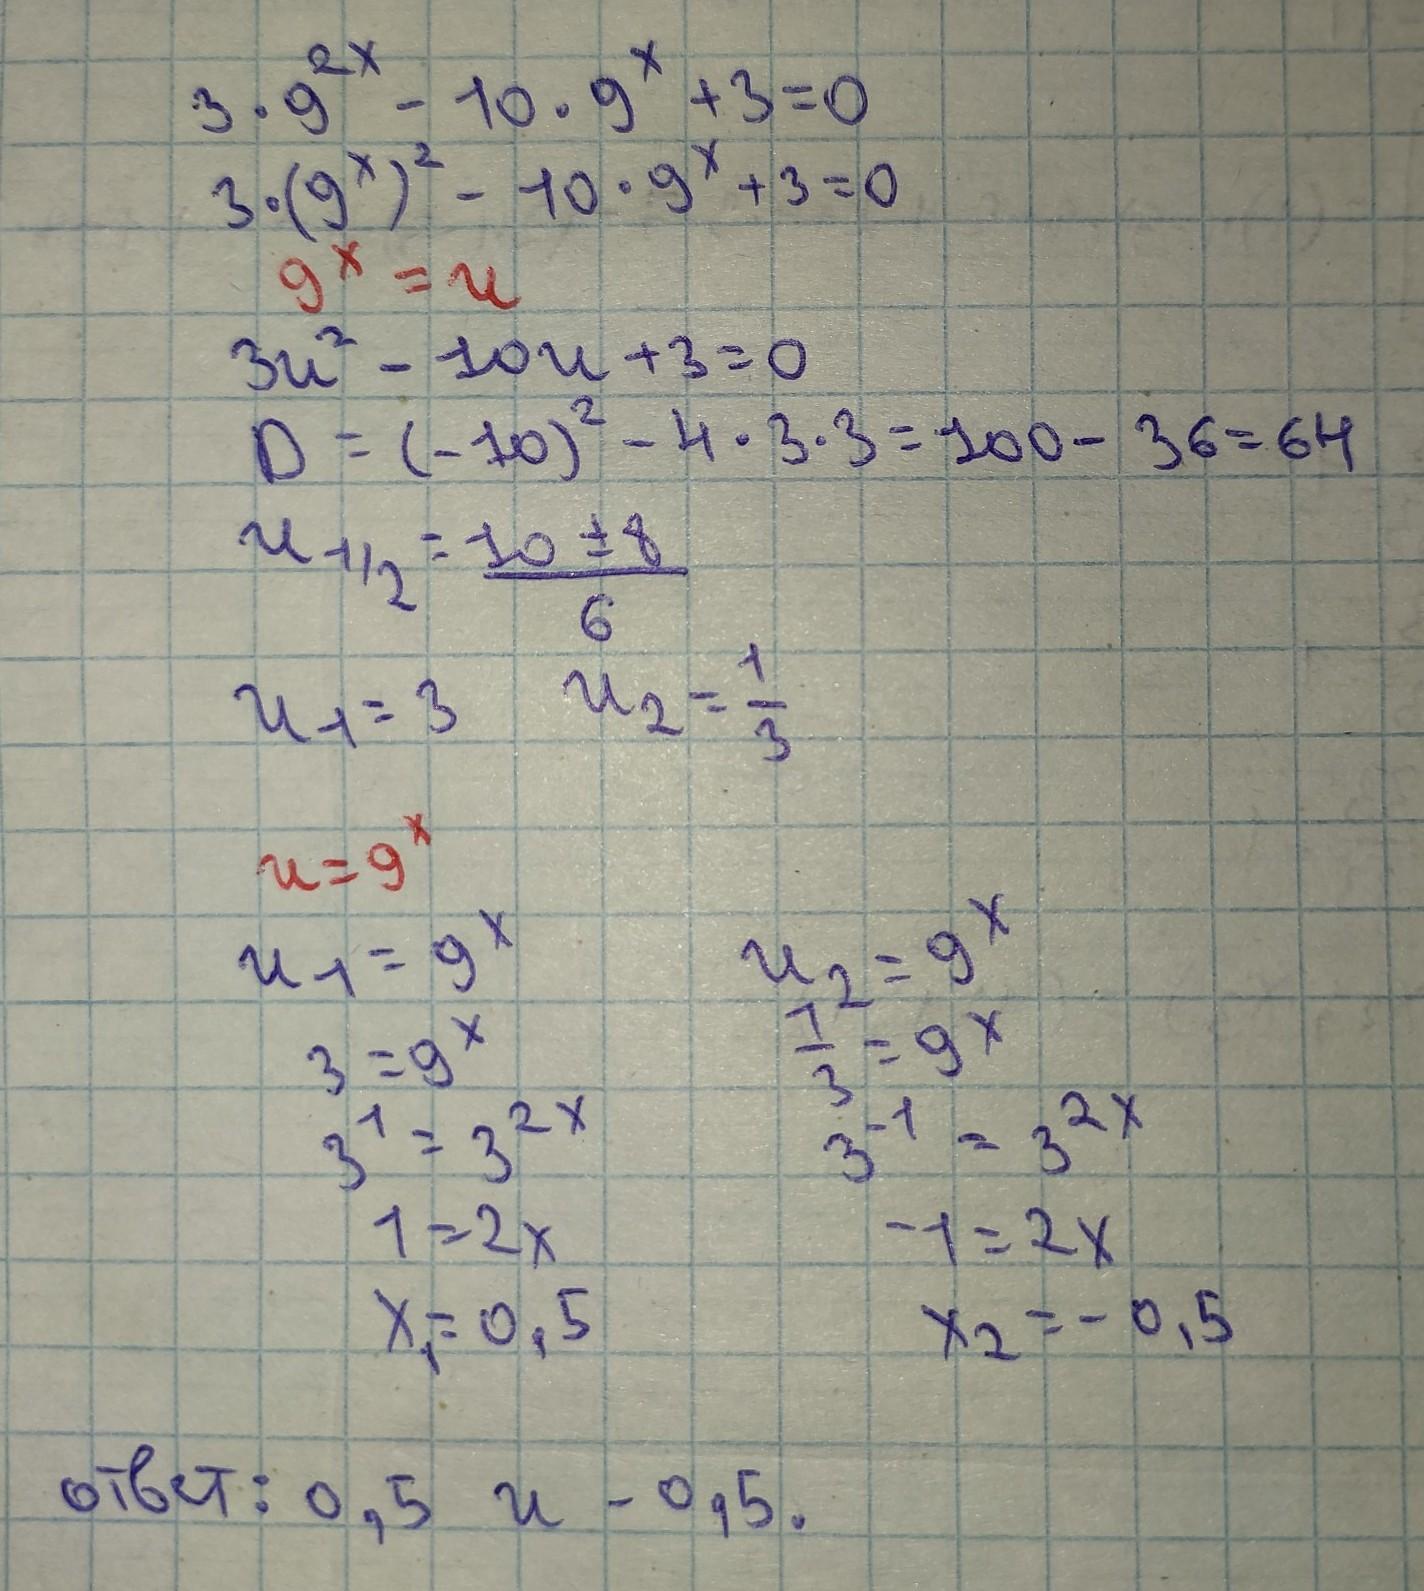 3·9^{2x} - 10·9^x + 3 = 0
3·(9^x)^2 - 10·9^x + 3 = 0
9^x = u
3u^2 - 10u + 3 = 0
D = (-10)^2 - 4·3·3 = 100 - 36 = 64
u_{1/2} = \frac{10 ± 8}{6}
u_1 = 3 u_2 = \frac{1}{3}
u = 9^x
u_1 = 9^x u_2 = 9^x
3 = 9^x \frac{1}{3} = 9^x
3^1 = 3^{2x} 3^{-1} = 3^{2x}
1 = 2x -1 = 2x
x_1 = 0,5 x_2 = -0,5
ответ: 0,5 и -0,5.